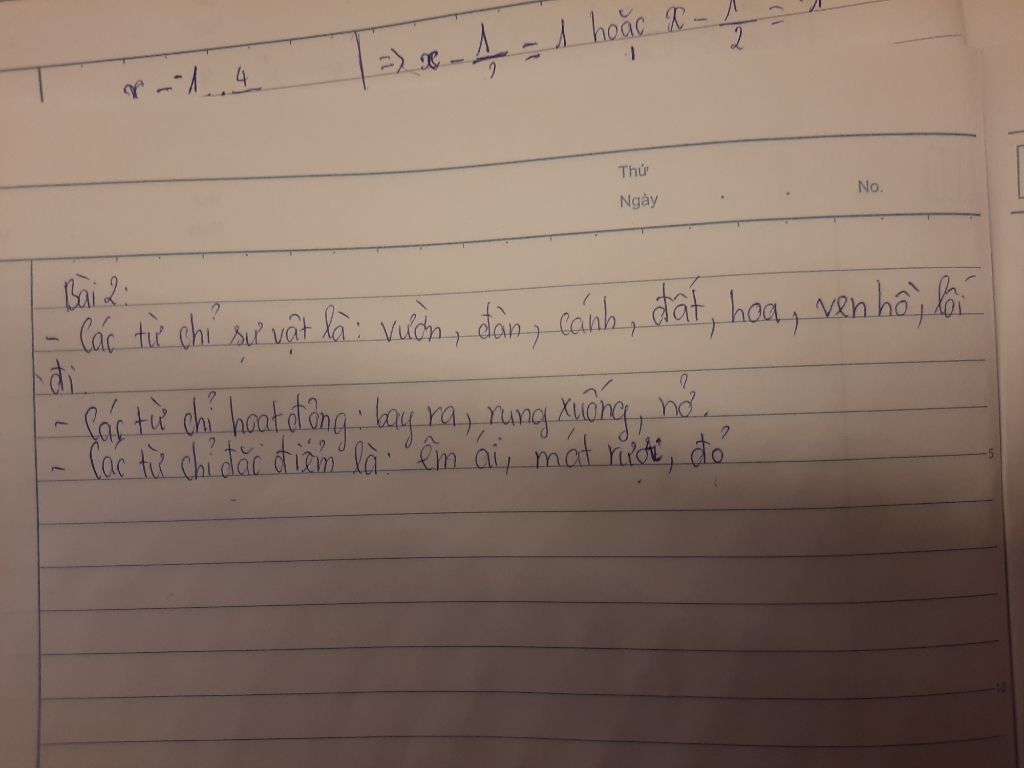 x = 1 . 4
=> x - 1/2 = 1 hoặc x - 1/2 =
Thứ
Ngày . . No.
Bài 2:
- Các từ chỉ sự vật là: vườn, đàn, cánh, đất, hoa, ven hồ, lối
đi.
- Các từ chỉ hoạt động: bay ra, rung xuống, nở.
- Các từ chỉ đặc điểm là: êm ái, mát rượi, đỏ
5
10